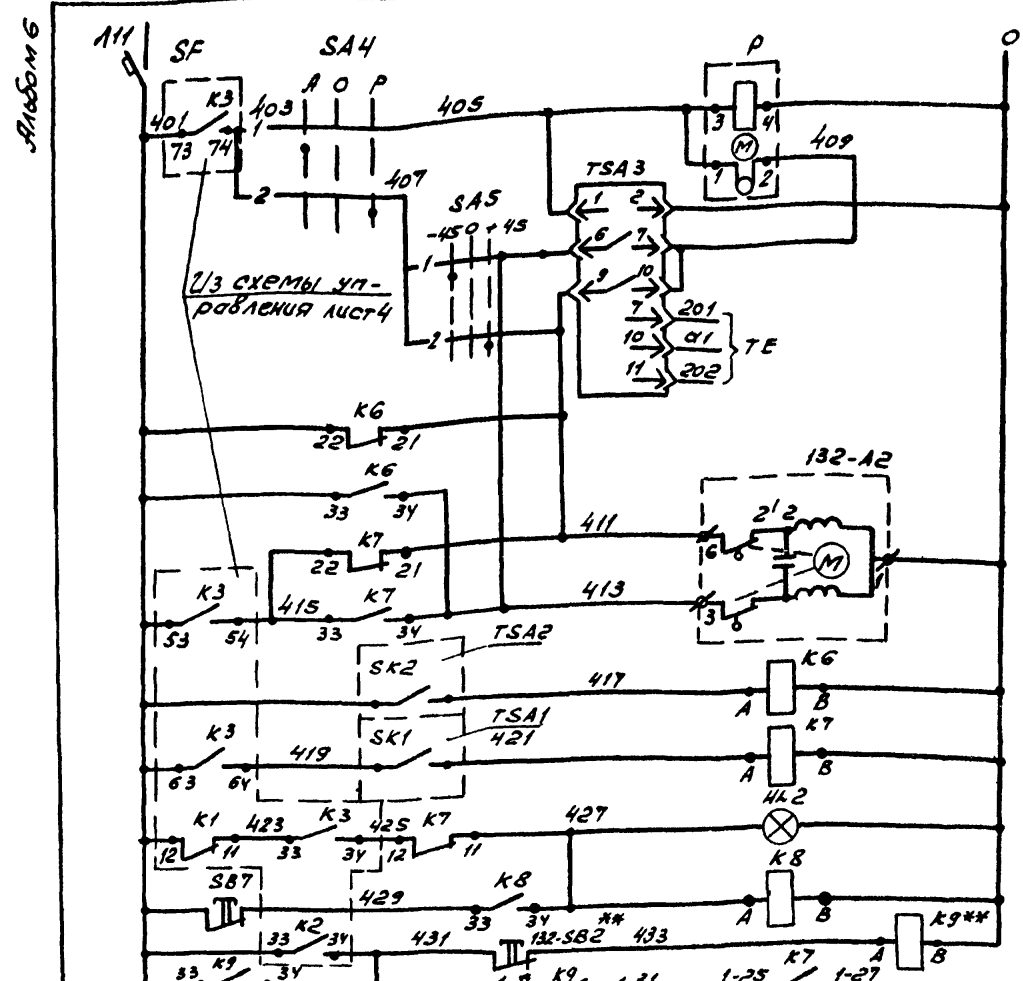 Альбом 6
Л11
SF
SA4
P
O
A O P
K3
401
403
405
73 74
1
3 4
M
1 2
409
2
407
TSA3
SA5
-45 0 +45
1
2
1 2
6 7
9 10
7 201
10 a1
11 202
TE
Из схемы уп-
равления лист 4
K6
22 21
K6
33 34
132-A2
411
6
2' 2
M
1
K7
22 21
K3
53 54
415
K7
33 34
413
3
TSA2
SK2
417
K6
A B
K3
63 64
419
TSA1
SK1
421
K7
A B
HL2
K1
12 11
423
K3
33 34
425
K7
12 11
427
SB7
429
K8
33 34
K8
A B
**
K2
33 34
431
132-SB2
433
K9**
A B
K9
33 34
K9
1-25
K7
1-27